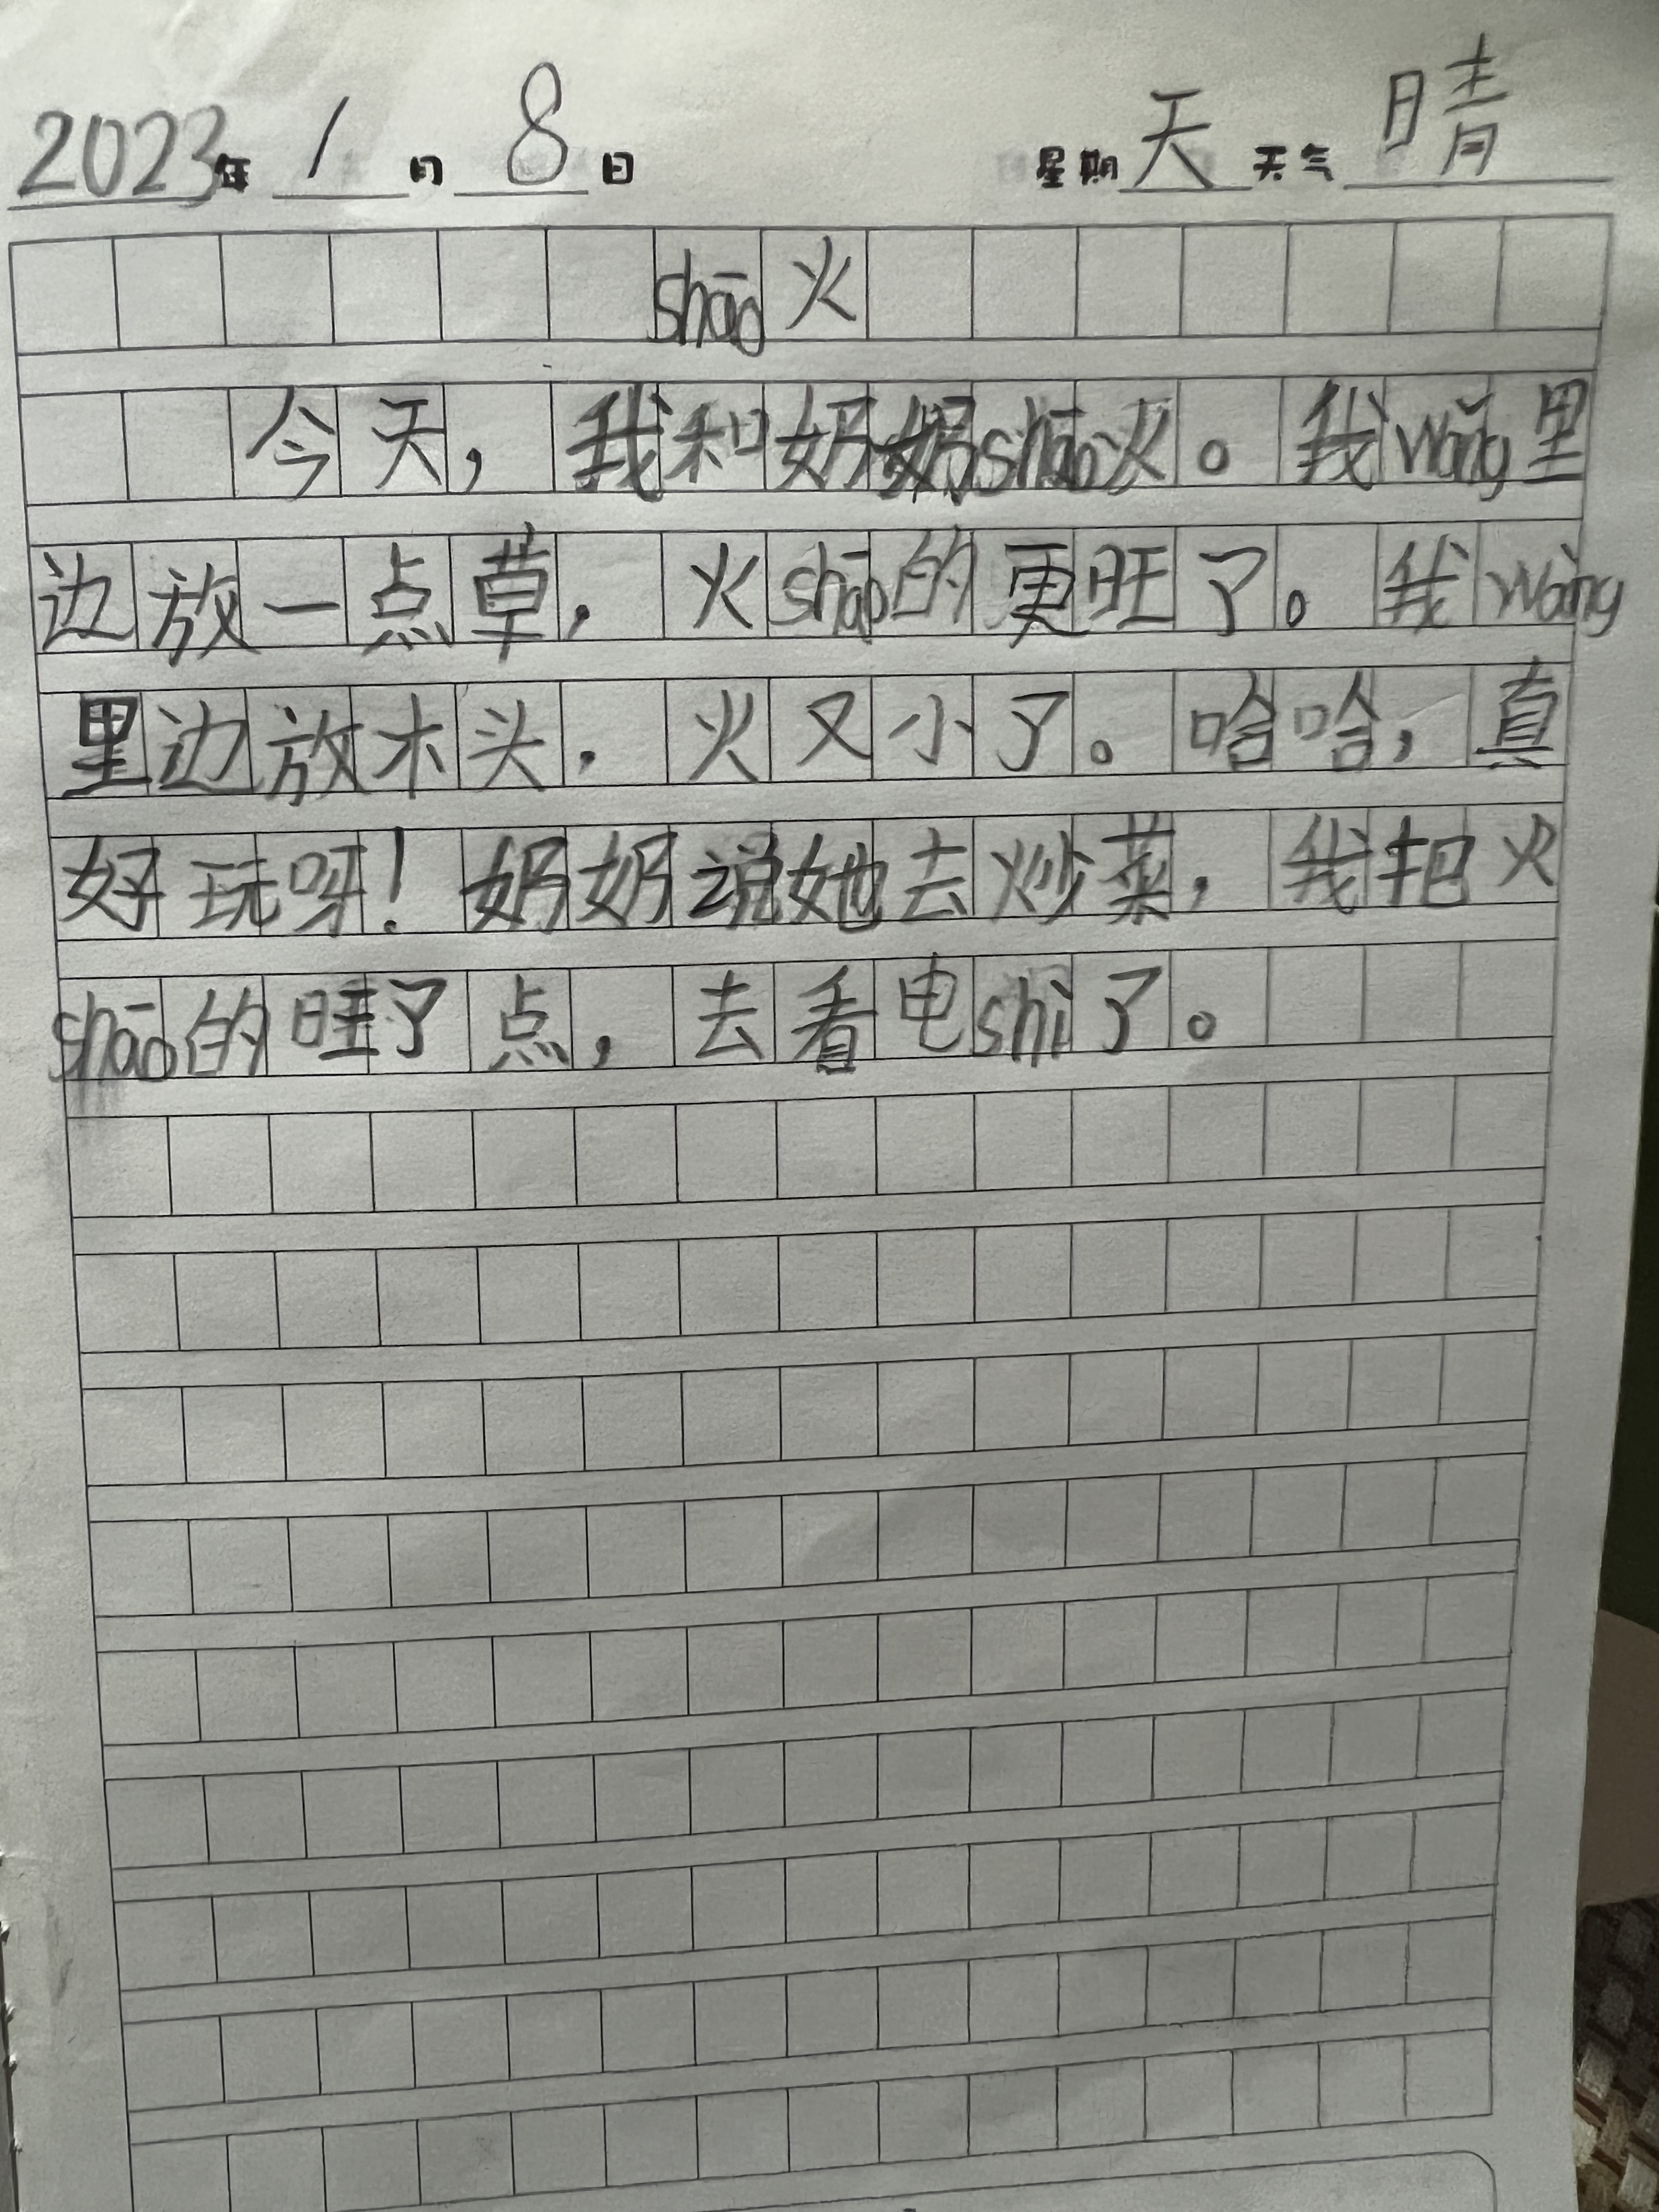 2023年1月8日 星期天 天气晴
shāo火
今天，我和奶奶shāo火。我wǎng里
边放一点草，火shāo的更旺了。我wǎng
里边放木头，火又小了。哈哈，真
好玩呀！奶奶说她去炒菜，我把火
shāo的旺了点，去看电shì了。